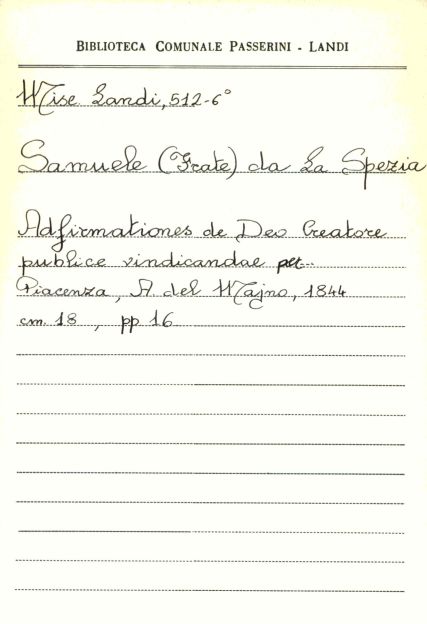 BIBLIOTECA COMUNALE PASSERINI - LANDI
Misc Landi, 512-6°
Samuele (Frate) da La Spezia
Adfirmationes de Deo Creatore
publice vindicandae
Piacenza, A del Majno, 1844
cm. 18 , pp 16